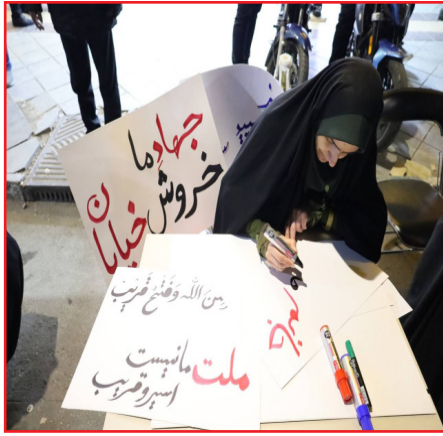 جهاد ما
خروش خیابان
مِنَ اللّه وَفَتحٌ قَریب
ملت ما نیست
اسیر و فریب